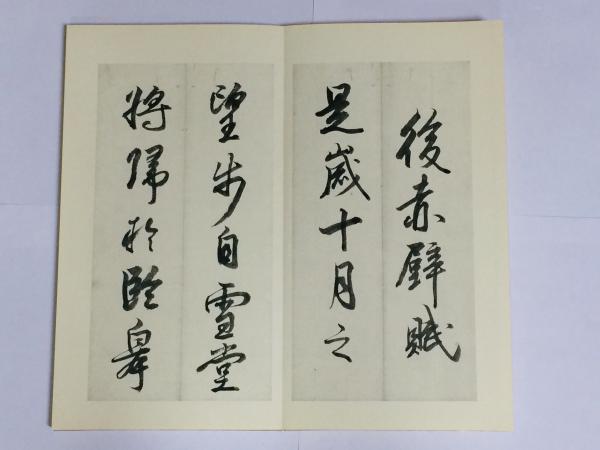 後赤壁賦
是歲十月之
望步自雪堂
將歸於臨皋